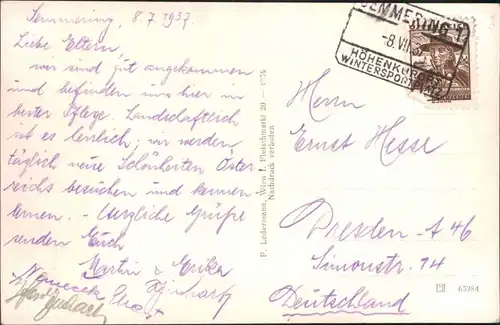 Semmering, 8.7.1937.
Liebe Eltern,
wir sind gut angekommen
und befinden uns hier in
bester Pflege. Landschaftlich
ist es herrlich; wir werden
täglich neue Schönheiten Öster
reichs besuchen und kennen
lernen. - Herzliche Grüße
senden Euch
Martin & Erika
P. Ledermann, Wien I. Fleischmarkt 20
Nachdruck verboten
SEMMERING 1
-8.VII.
HÖHENKURORT
WINTERSPORTPLATZ
Herrn
Ernst Hesse
Dresden-A 46
Simonstr. 14
Deutschland
65984